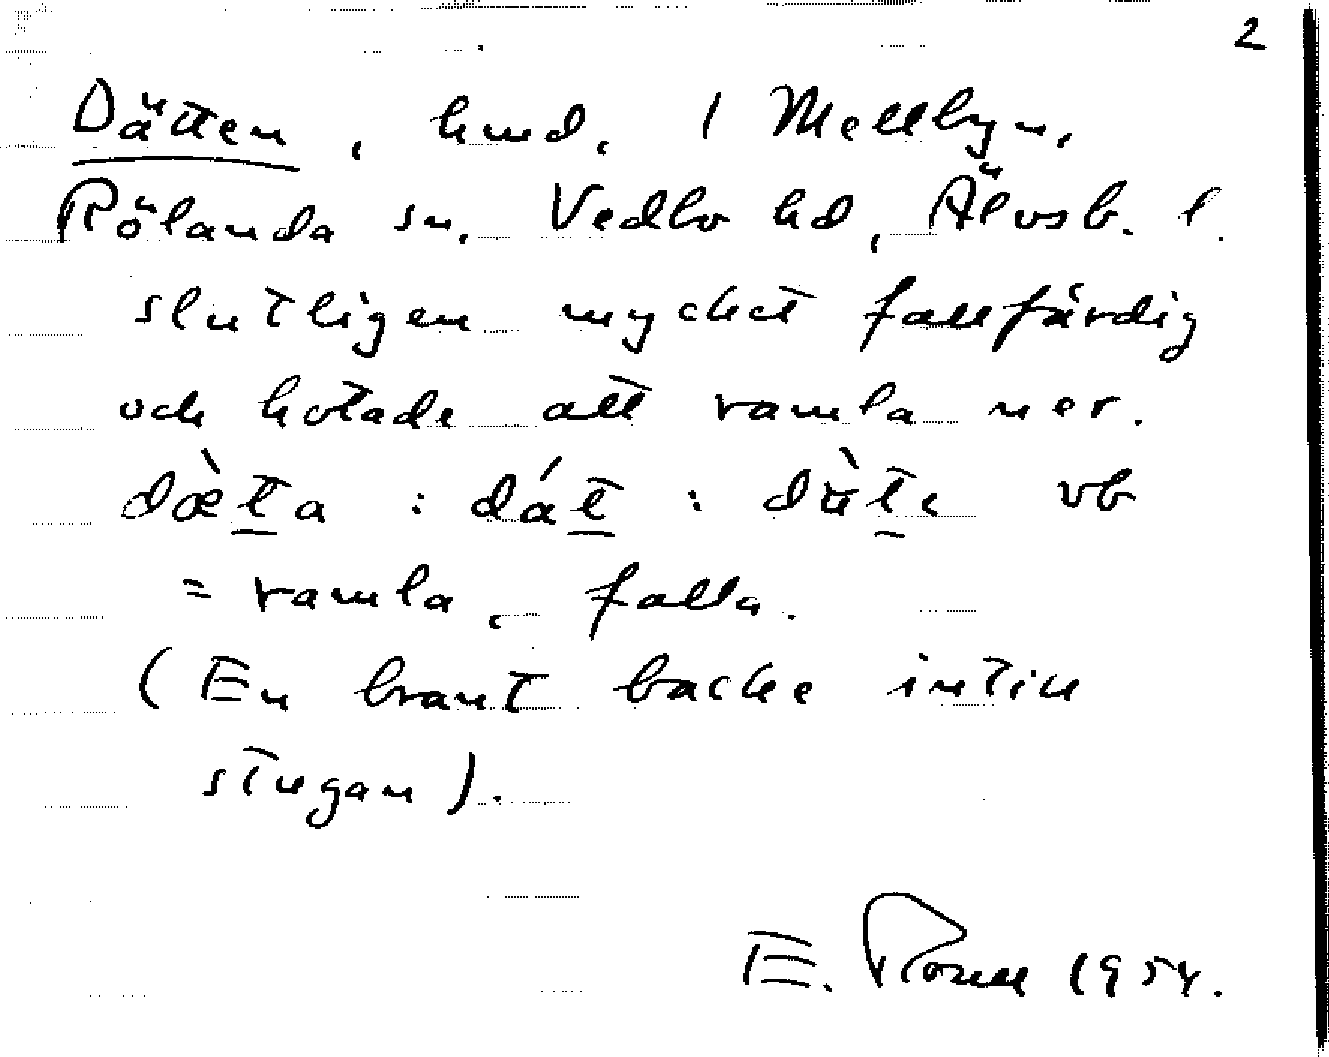 2
Dätten, hmd. / Mellbyn,
Rölanda sn. Vedbo hd, Älvsb. l.
slutligen mycket fallfärdig
och hotade att ramla ner.
dæ̀ta : dát : dùte vb
= ramla, falla.
(En brant backe intill
stugan).
E. Rosell 1954.